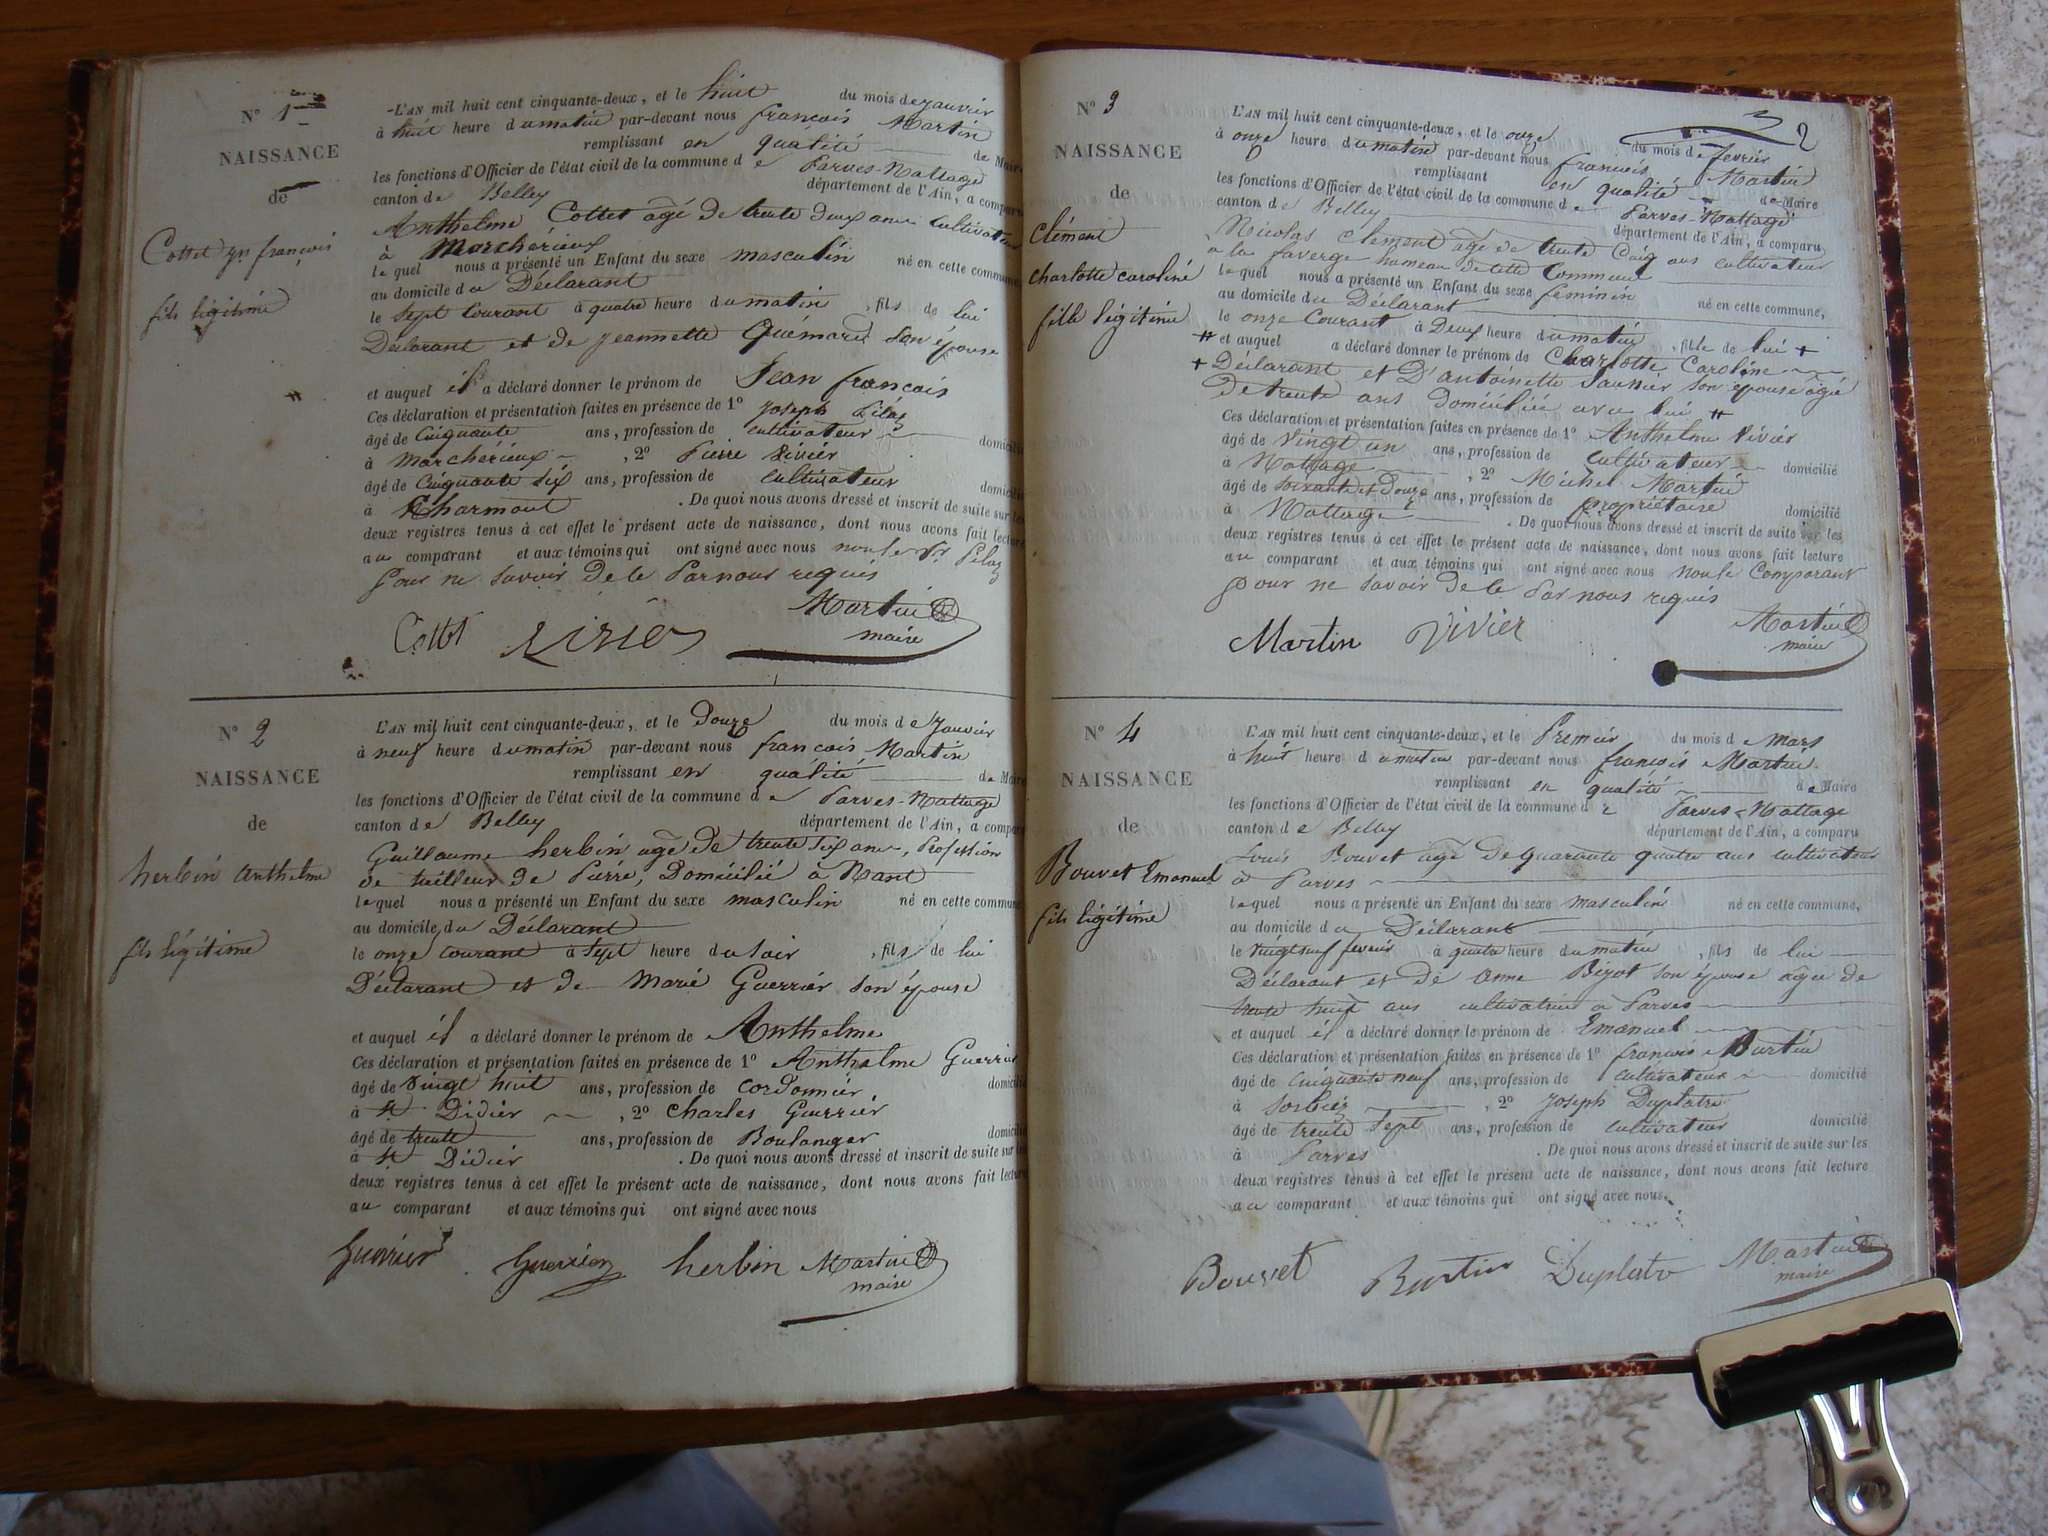 N° 1
NAISSANCE
de
Cottet Jn françois
fils légitime
L'AN mil huit cent cinquante-deux, et le huit du mois de janvier
à huit heure du matin par-devant nous francois Martin
remplissant en qualité de Maire
les fonctions d'Officier de l'état civil de la commune de Parves-Nattage
canton de Belley département de l'Ain, a comparu
Anthelme Cottet agé de trente deux ans cultivateur
à Marchérieux
lequel nous a présenté un Enfant du sexe masculin né en cette commune
au domicile du Déclarant
le sept courant à quatre heure du matin, fils de lui
Déclarant et de jeannette Quémard son épouse
et auquel il a déclaré donner le prénom de Jean francois
Ces déclaration et présentation faites en présence de 1° Joseph Pélaz
âgé de cinquante ans, profession de cultivateur domicilié
à Marchérieux, 2° Pierre Vivier
âgé de cinquante six ans, profession de cultivateur domicilié
à Charmont. De quoi nous avons dressé et inscrit de suite sur les
deux registres tenus à cet effet le présent acte de naissance, dont nous avons fait lecture
au comparant et aux témoins qui ont signé avec nous non le Sr Pelaz
pour ne savoir de ce Par nous requis
Martin
Cottet Vivier maire
N° 2
NAISSANCE
de
herbin Anthelme
fils légitime
L'AN mil huit cent cinquante-deux, et le Douze du mois de Janvier
à neuf heure du matin par-devant nous francois Martin
remplissant en qualité de Maire
les fonctions d'Officier de l'état civil de la commune de Parves-Nattage
canton de Belley département de l'Ain, a comparu
Guillaume herbin agé de trente six ans, Profession
de tailleur de Pierre, Domicilié à Nant
lequel nous a présenté un Enfant du sexe masculin né en cette commune
au domicile du Déclarant
le onze courant à sept heure du soir, fils de lui
Déclarant et de Marie Guerrier son épouse
et auquel il a déclaré donner le prénom de Anthelme
Ces déclaration et présentation faites en présence de 1° Anthelme Guerrier
âgé de vingt huit ans, profession de cordonnier domicilié
à St Didier, 2° Charles Guerrier
âgé de trente ans, profession de Boulanger domicilié
à St Didier. De quoi nous avons dressé et inscrit de suite sur les
deux registres tenus à cet effet le présent acte de naissance, dont nous avons fait lecture
au comparant et aux témoins qui ont signé avec nous
Guerrier Guerrier herbin Martin
maire
2
N° 3
NAISSANCE
de
Clément
Charlotte caroline
fille légitime
L'AN mil huit cent cinquante-deux, et le onze du mois de fevrier
à onze heure du matin par-devant nous francois Martin
remplissant en qualité de Maire
les fonctions d'Officier de l'état civil de la commune de Parves-Nattage
canton de Belley département de l'Ain, a comparu
Nicolas Clement agé de trente Cinq ans cultivateur
a la faverge hameau de cette Commune
lequel nous a présenté un Enfant du sexe feminin né en cette commune,
au domicile du Déclarant
le onze Courant à Deux heure du matin, fille de lui +
# et auquel a déclaré donner le prénom de Charlotte Caroline
+ Déclarant et D'antoinette Saunier son épouse agée
de trente ans domiciliée avec lui #
Ces déclaration et présentation faites en présence de 1° Anthelme Vivier
âgé de vingt un ans, profession de cultivateur domicilié
à Nattage, 2° Michel Martin
âgé de soixante et douze ans, profession de propriétaire domicilié
à Nattage. De quoi nous avons dressé et inscrit de suite sur les
deux registres tenus à cet effet le présent acte de naissance, dont nous avons fait lecture
au comparant et aux témoins qui ont signé avec nous non le Comparant
pour ne savoir de ce Par nous requis
Martin Vivier Martin
maire
N° 4
NAISSANCE
de
Bouvet Emanuel
fils légitime
L'AN mil huit cent cinquante-deux, et le Premier du mois de Mars
à huit heure du matin par-devant nous françois Martin
remplissant en qualité de Maire
les fonctions d'Officier de l'état civil de la commune de Parves-Nattage
canton de Belley département de l'Ain, a comparu
Louis Bouvet agé de quarante quatre ans cultivateur
à Parves
lequel nous a présenté un Enfant du sexe masculin né en cette commune,
au domicile du Déclarant
le vingt neuf fevrier à quatre heure du matin, fils de lui
Déclarant et de anne Bizot son épouse agée de
trente huit ans cultivatrice à Parves
et auquel il a déclaré donner le prénom de Emanuel
Ces déclaration et présentation faites en présence de 1° francois Burtin
âgé de cinquante neuf ans, profession de cultivateur domicilié
à Sorbier, 2° Joseph Duplatre
âgé de trente sept ans, profession de cultivateur domicilié
à Parves. De quoi nous avons dressé et inscrit de suite sur les
deux registres tenus à cet effet le présent acte de naissance, dont nous avons fait lecture
au comparant et aux témoins qui ont signé avec nous.
Bouvet Burtin Duplatre Martin
maire